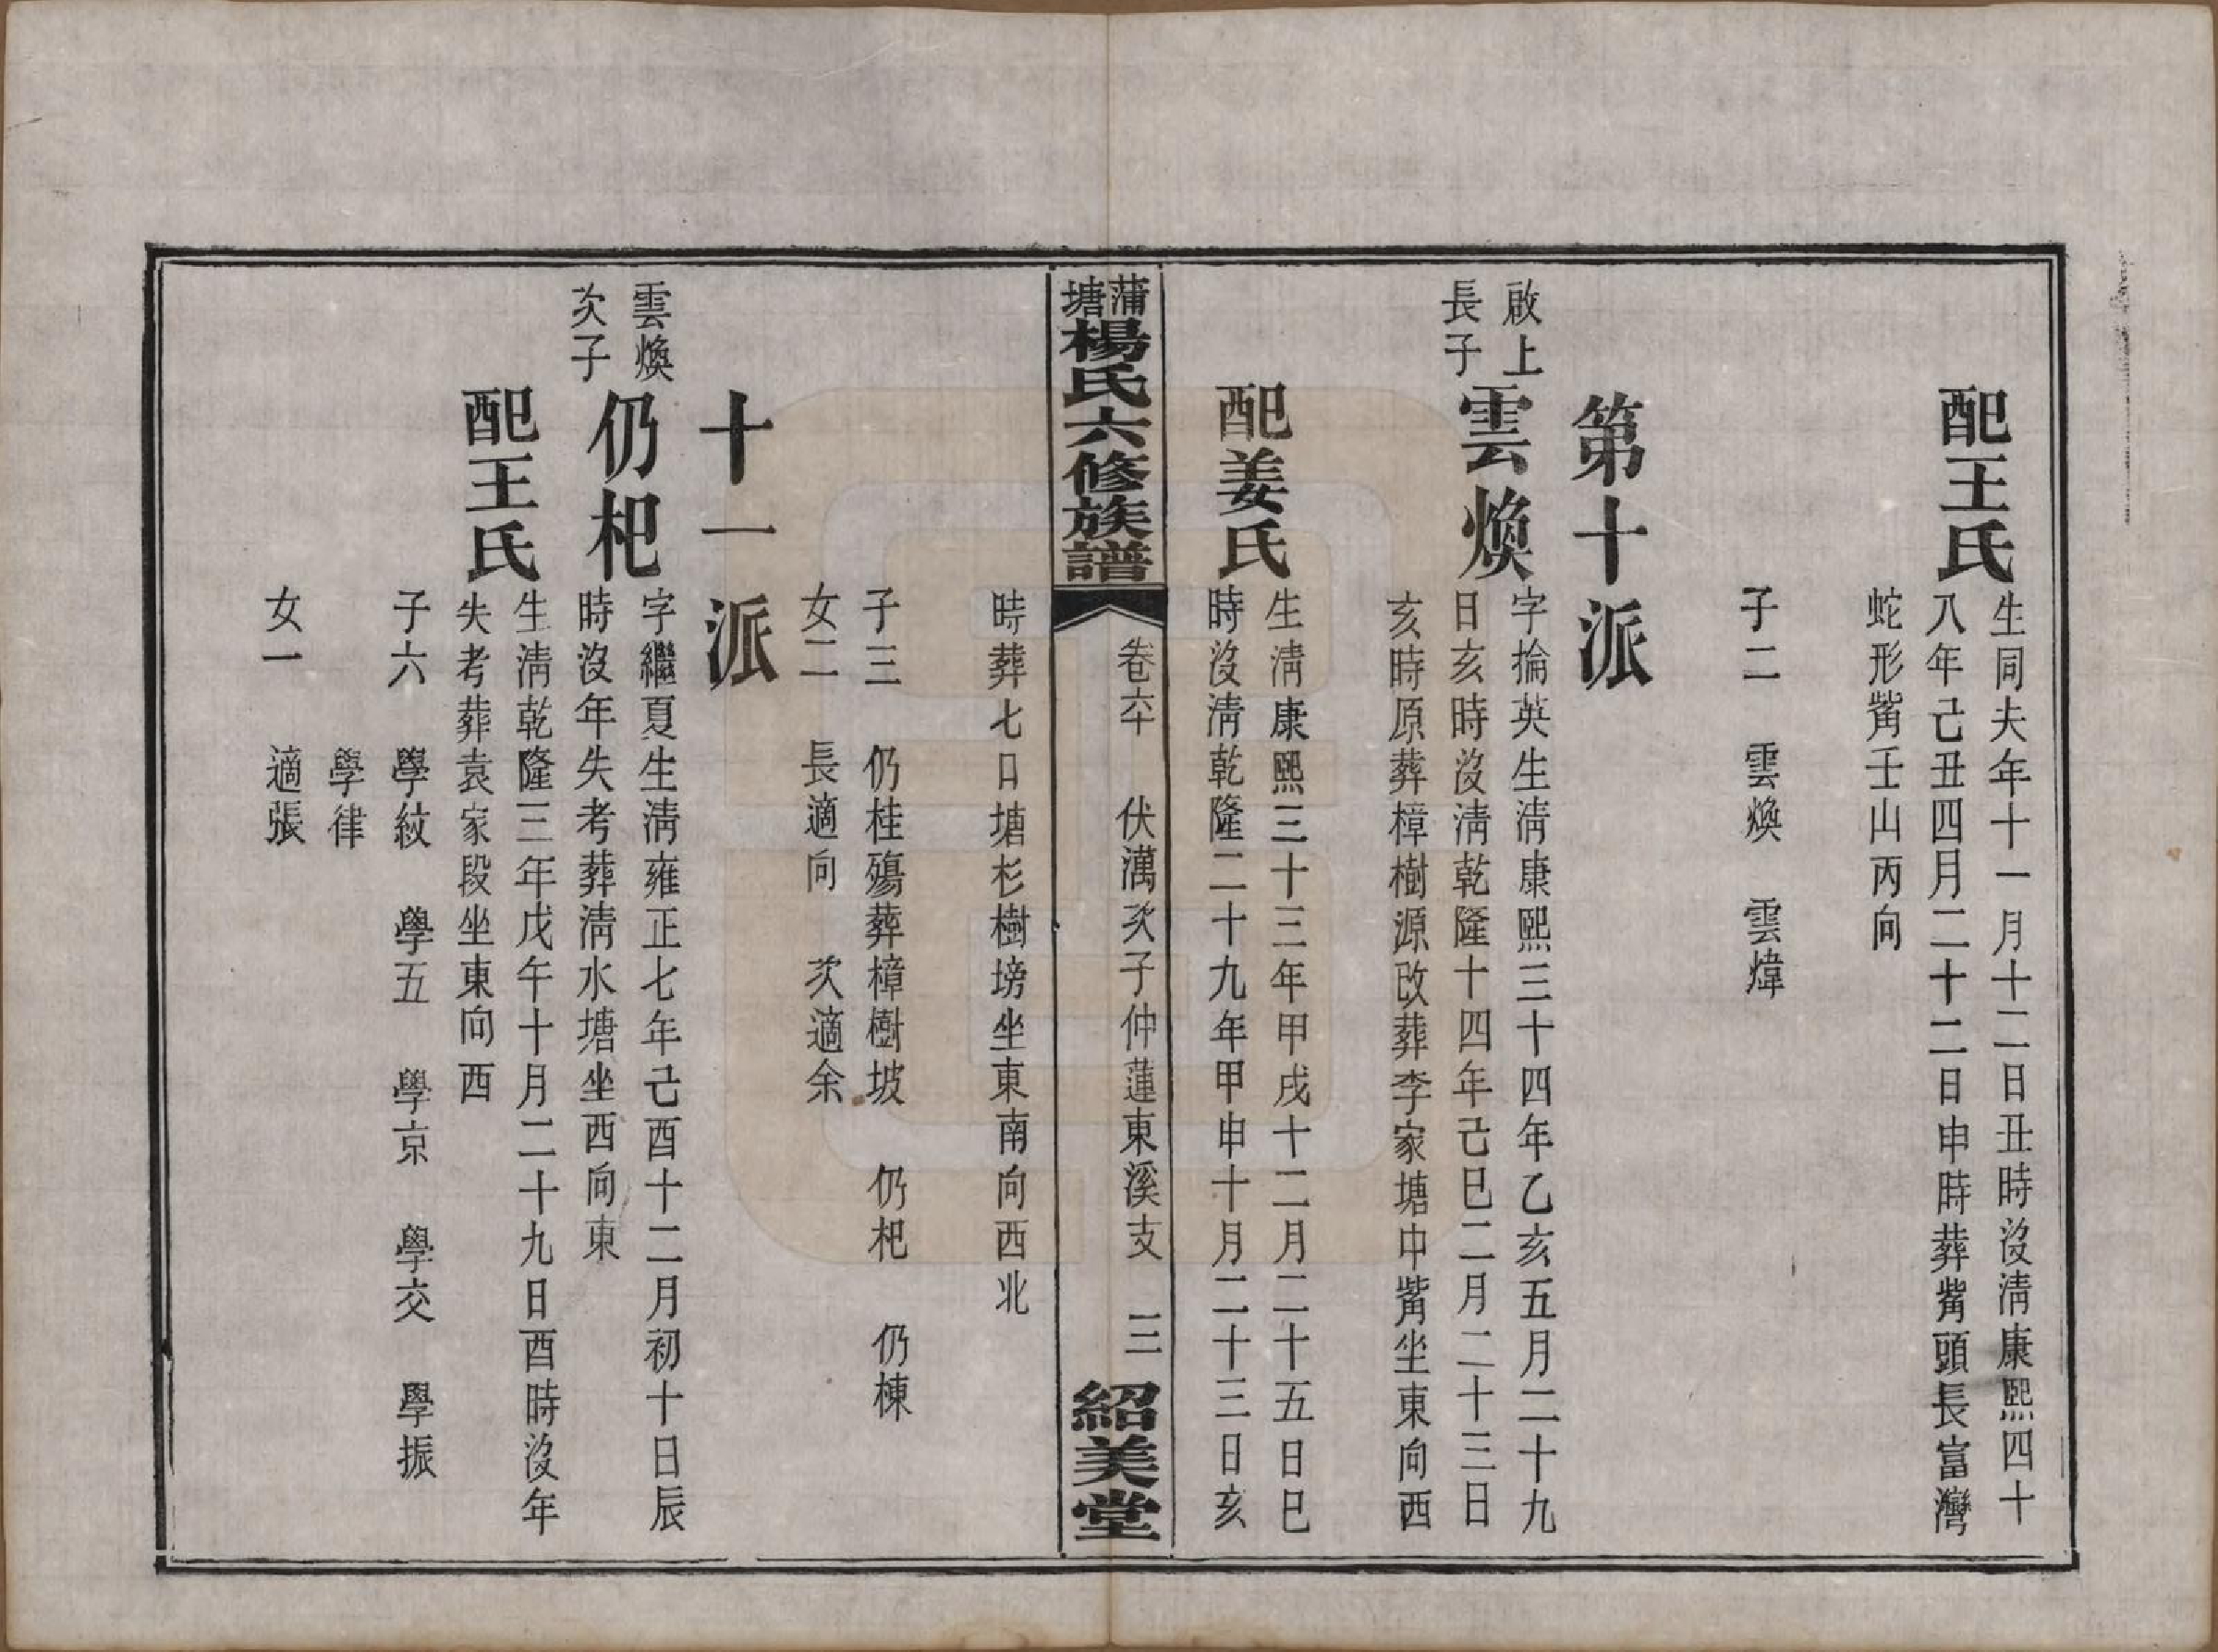 配王氏
生同夫年十一月十二日丑時沒清康熙四十
八年己丑四月二十二日申時葬觜頭長富灣
蛇形觜壬山丙向
子二 雲煥 雲煒
第十派
啟上
長子
雲煥
字掄英生清康熙三十四年乙亥五月二十九
日亥時沒清乾隆十四年己巳二月二十三日
亥時原葬樟樹源改葬李家塘中觜坐東向西
配姜氏
生清康熙三十三年甲戌十二月二十五日巳
時沒清乾隆二十九年甲申十月二十三日亥
蒲塘楊氏六修族譜 卷六十 伏澫次子仲蓮東溪支 三 紹美堂
時葬七口塘杉樹塝坐東南向西北
子三 仍桂殤葬樟樹坡 仍杷 仍棟
女二 長適向 次適余
十一派
雲煥
次子
仍杷
字繼夏生清雍正七年己酉十二月初十日辰
時沒年失考葬清水塘坐西向東
配王氏
生清乾隆三年戊午十月二十九日酉時沒年
失考葬袁家段坐東向西
子六 學紋 學五 學京 學交 學振
學律
女一 適張